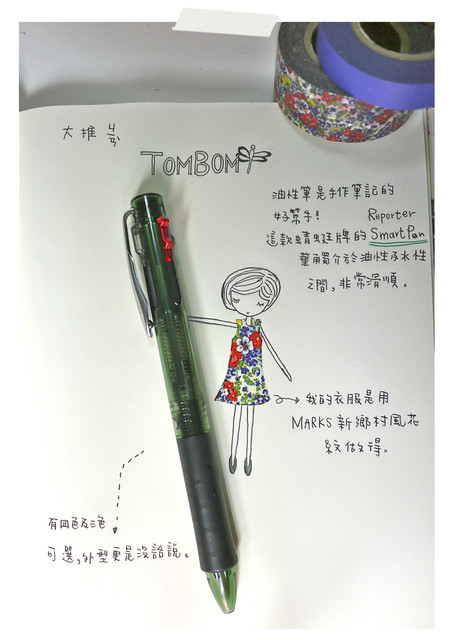 大推
TOMBOM
油性筆是手作筆記的
好幫手! Reporter
這款蜻蜓牌的 SmartPen
筆觸介於油性及水性
之間,非常滑順。
我的衣服是用
MARKS 新鄉村風花
紋做得。
有四色及三色
可選,外型更是沒話說。